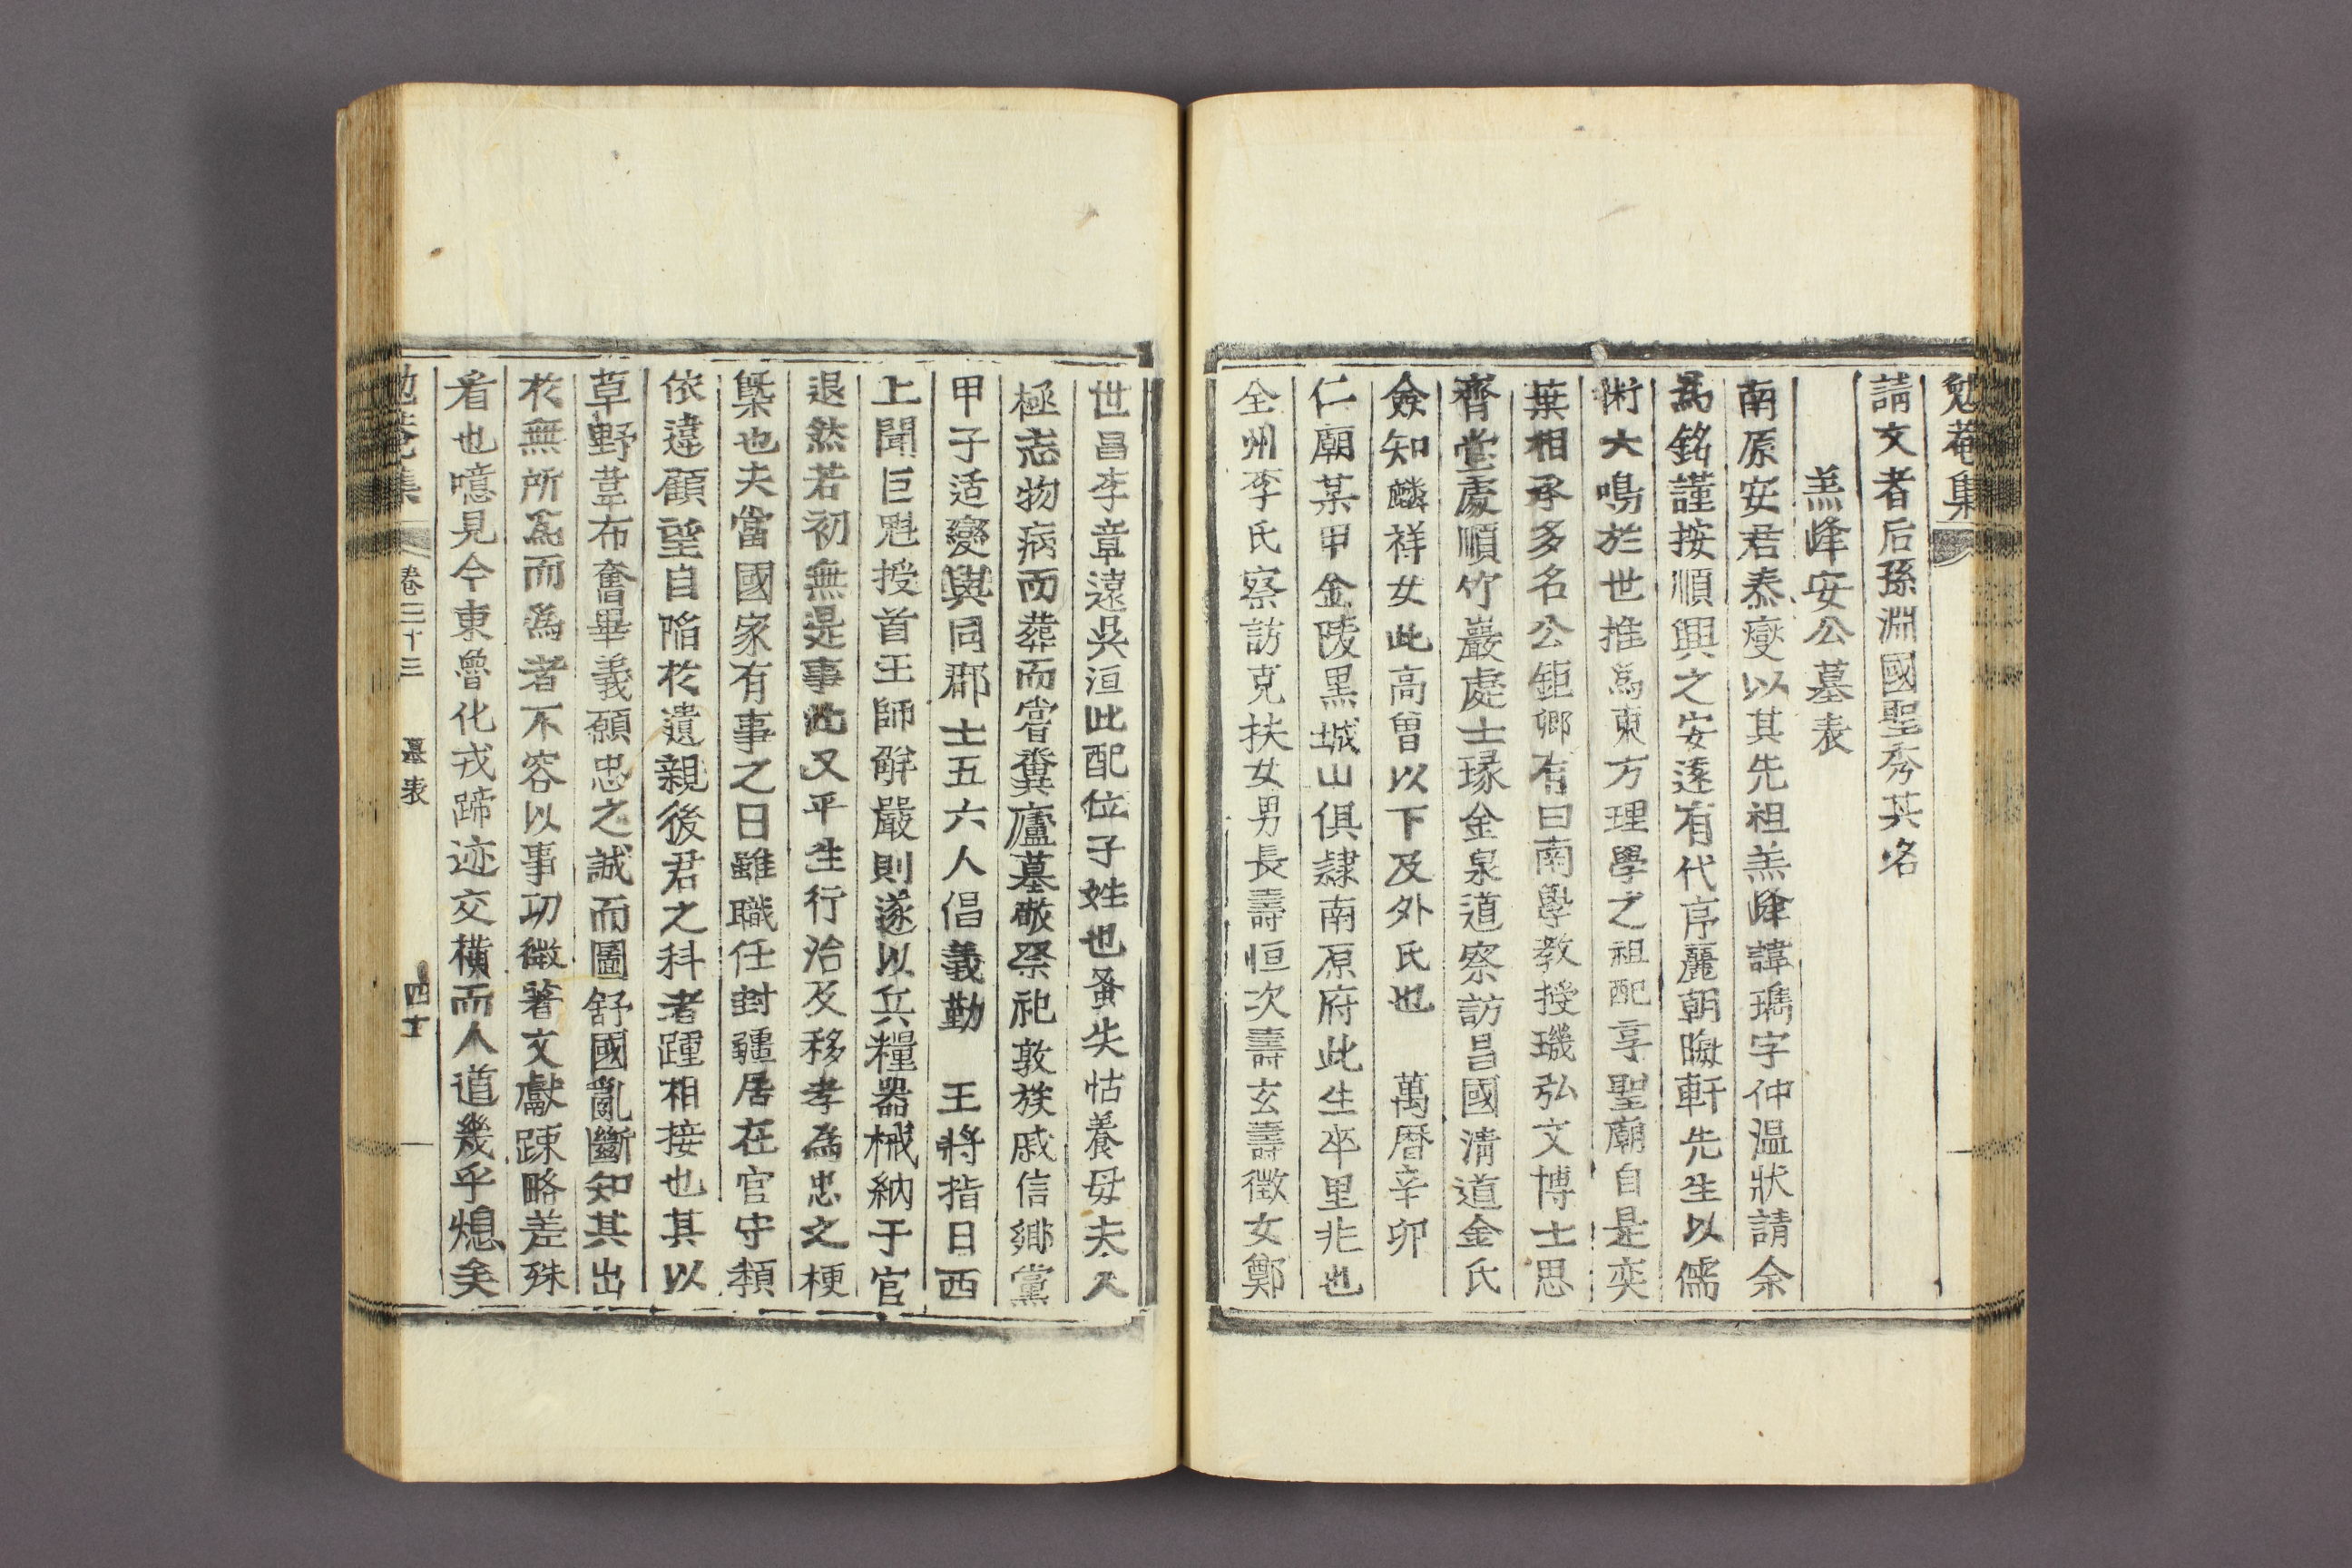 勉菴集
請文者后孫淵國聖秀其名
羔峰安公墓表
南原安君泰燮以其先祖羔峰諱瑀字仲溫狀請余
爲銘謹按順興之安遠有代序麗朝晦軒先生以儒
術大鳴於世推爲東方理學之祖配享聖廟自是奕
葉相承多名公鉅卿有曰南學教授璣弘文博士思
齊堂處順竹巖處士瑑金泉道察訪昌國淸道金氏
僉知麟祥女此高曾以下及外氏也 萬曆辛卯
仁廟某甲金陵黑城山俱隷南原府此生卒里兆也
全州李氏察訪克扶女男長壽恒次壽玄壽徵女鄭
世昌李章遠吳洹此配位子姓也蚤失怙養母夫人
極志物病而嘗糞葬而廬墓敬祭祀敦族戚信鄉黨
甲子适變與同郡士五六人倡義勤 王將指日西
上聞巨魁授首王師解嚴則遂以兵糧器械納于官
退然若初無是事此又平生行治及移孝爲忠之梗
槩也夫當國家有事之日雖職任封疆居在官守類
依違顧望自陷於遺親後君之科者踵相接也其以
草野韋布奮畢義願忠之誠而圖舒國亂斷知其出
於無所爲而爲者不容以事功微著文獻踈略差殊
看也噫見今東魯化戎蹄迹交橫而人道幾乎熄矣
勉菴集 卷三十三 墓表 四十